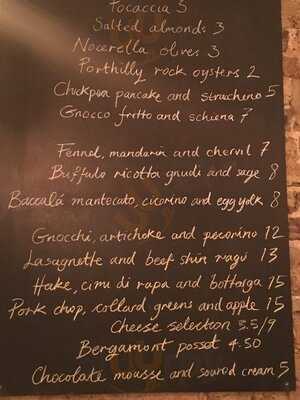 Focaccia 5
Salted almonds 3
Nocerella olives 3
Porthilly rock oysters 2
Chickpea pancake and stracchino 5
Gnocco fritto and schiena 7
Fennel, mandarin and chervil 7
Buffalo ricotta gnudi and sage 8
Baccalá mantecato, cicorino and egg yolk 8
Gnocchi, artichoke and pecorino 12
Lasagnette and beef shin ragù 13
Hake, cimi di rapa and bottarga 15
Pork chop, collard greens and apple 15
Cheese selection 3.5/9
Bergamont posset 4.50
Chocolate mousse and soured cream 5